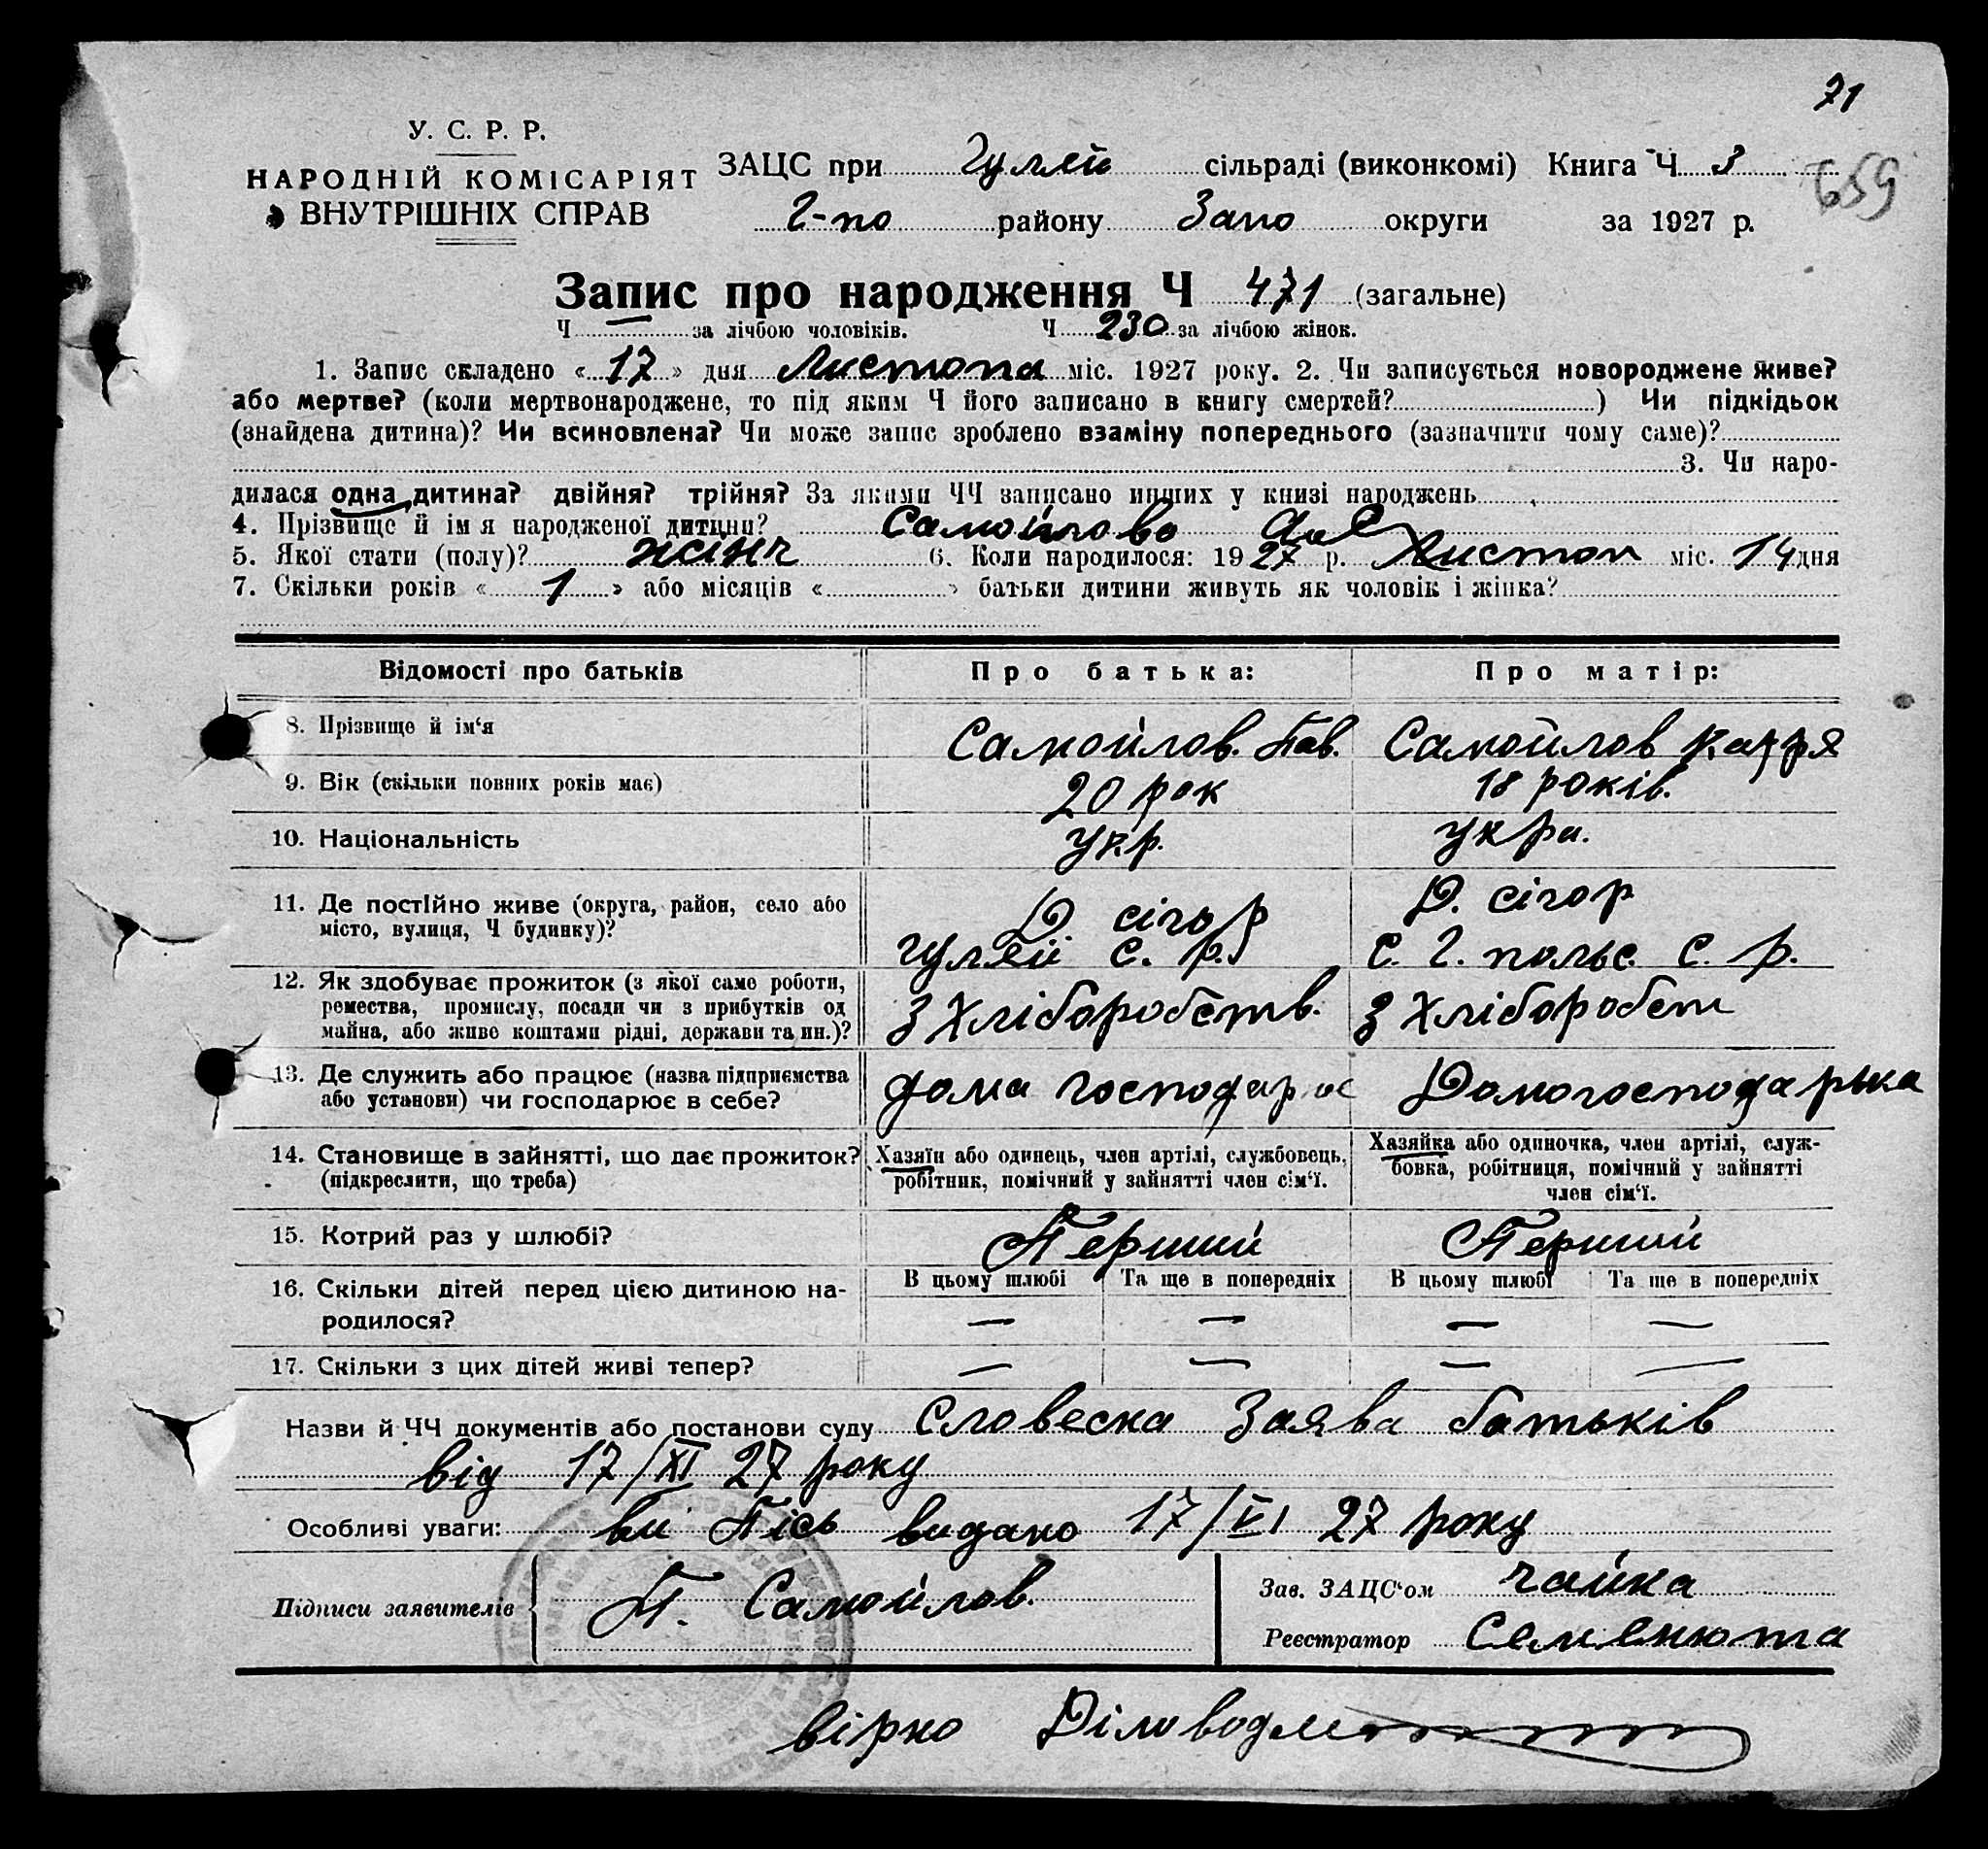 71
У. С. Р. Р.
НАРОДНІЙ КОМІСАРІЯТ
ВНУТРІШНІХ СПРАВ
ЗАЦС при Гуляй сільраді (виконкомі) Книга Ч 3
659
Г-по району Запо округи за 1927 р.
Запис про народження Ч 471 (загальне)
Ч — за лічбою чоловіків. Ч 230 за лічбою жінок.
1. Запис складено « 17 » дня Листопа міс. 1927 року. 2. Чи записується новороджене живе?
або мертве? (коли мертвонароджене, то під яким Ч його записано в книгу смертей? ) Чи підкідьок
(знайдена дитина)? Чи всиновлена? Чи може запис зроблено взаміну попереднього (зазначити чому саме)?
3. Чи наро-
дилася одна дитина? двійня? трійня? За якими ЧЧ записано инших у книзі народжень
4. Прізвище й ім я народженої дитини? Самойлова
5. Якої стати (полу)? жіноч 6. Коли народилося: 1927 р. Листоп міс. 14 дня
7. Скільки років « 1 » або місяців « » батьки дитини живуть як чоловік і жінка?
Відомості про батьків Про батька: Про матір:
8. Прізвище й ім‘я Самойлов. Пав. Самойлов
9. Вік (скільки повних років має) 20 рок 18 років.
10. Національність укр. укра.
11. Де постійно живе (округа, район, село або
місто, вулиця, Ч будинку)?
Д сігор Д. сігор
Гуляй с. р. с. Г. польс. с. р.
12. Як здобуває прожиток (з якої саме роботи,
ремества, промислу, посади чи з прибутків од
майна, або живе коштами рідні, держави та ин.)?
З Хліборобств. З Хліборобст
13. Де служить або працює (назва підприємства
або установи) чи господарює в себе?
дома господарює Домогосподарька
14. Становище в зайнятті, що дає прожиток?
(підкреслити, що треба)
Хазяїн або одинець, член артілі, службовець,
робітник, помічний у зайнятті член сім‘ї.
Хазяйка або одиночка, член артілі, служ-
бовка, робітниця, помічний у зайнятті
член сім‘ї.
15. Котрий раз у шлюбі? Перший Перший
16. Скільки дітей перед цією дитиною на-
родилося?
В цьому шлюбі Та ще в попередніх В цьому шлюбі Та ще в попередніх
— — — —
17. Скільки з цих дітей живі тепер? — — — —
Назви й ЧЧ документів або постанови суду Словесна Заява батьків
від 17/XI 27 року
Особливі уваги: ви Пісь видано 17/VI 27 року
Підписи заявителів П. Самойлов.
Зав. ЗАЦС‘ом Чайка
Реєстратор Семенюта
вірно Діловод